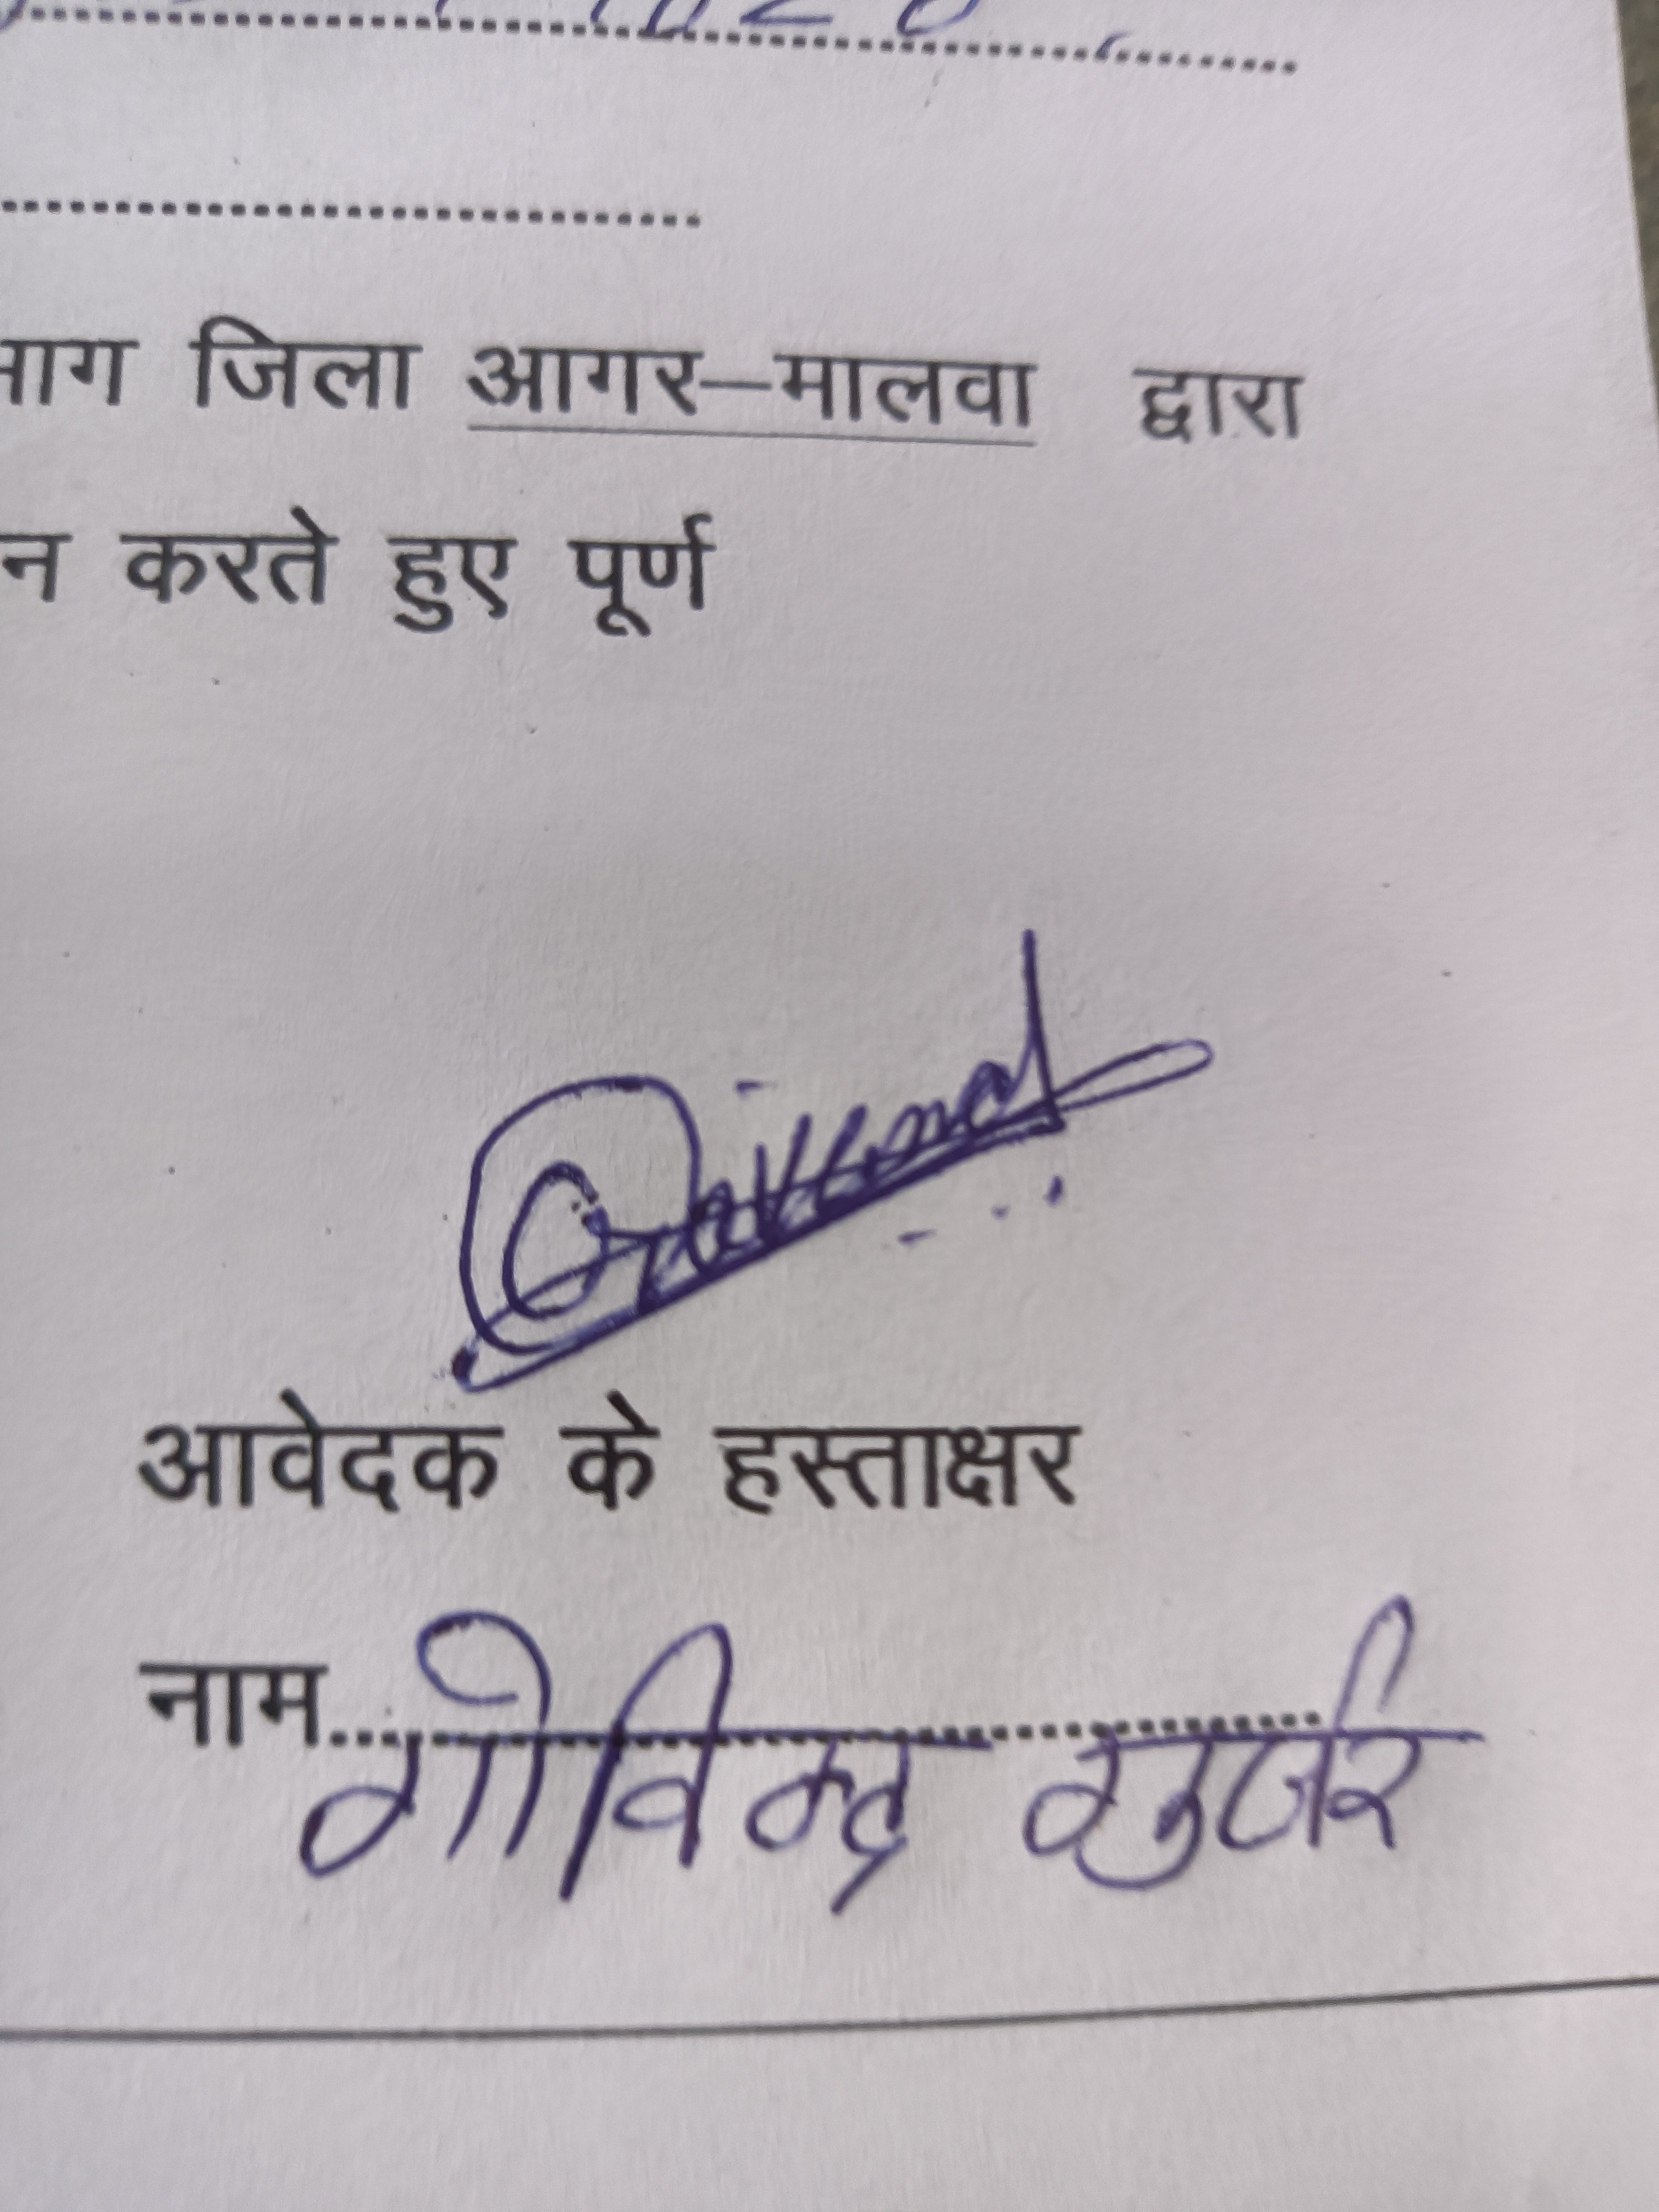 जिला आगर–मालवा द्वारा
न करते हुए पूर्ण
Govind
आवेदक के हस्ताक्षर
नाम.......................... गोविन्द गुर्जर